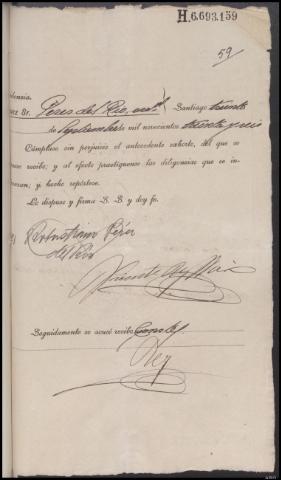 H.6.693.159
59
Providencia.
Juez Sr. Peres del Rio, acctl. Santiago treinta
de Septiembre de mil novecientos treinta y seis
Cúmplase sin perjuicio el antecedente exhorto, del que se
acuse recibo; y al efecto practíquense las diligencias que se in-
teresan; y hecho repórtese.
Lo dispuso y firma S. S. y doy fe.
Pérez
del Río
Vicente Rey
Seguidamente se acusó recibo doy fe.
Rey